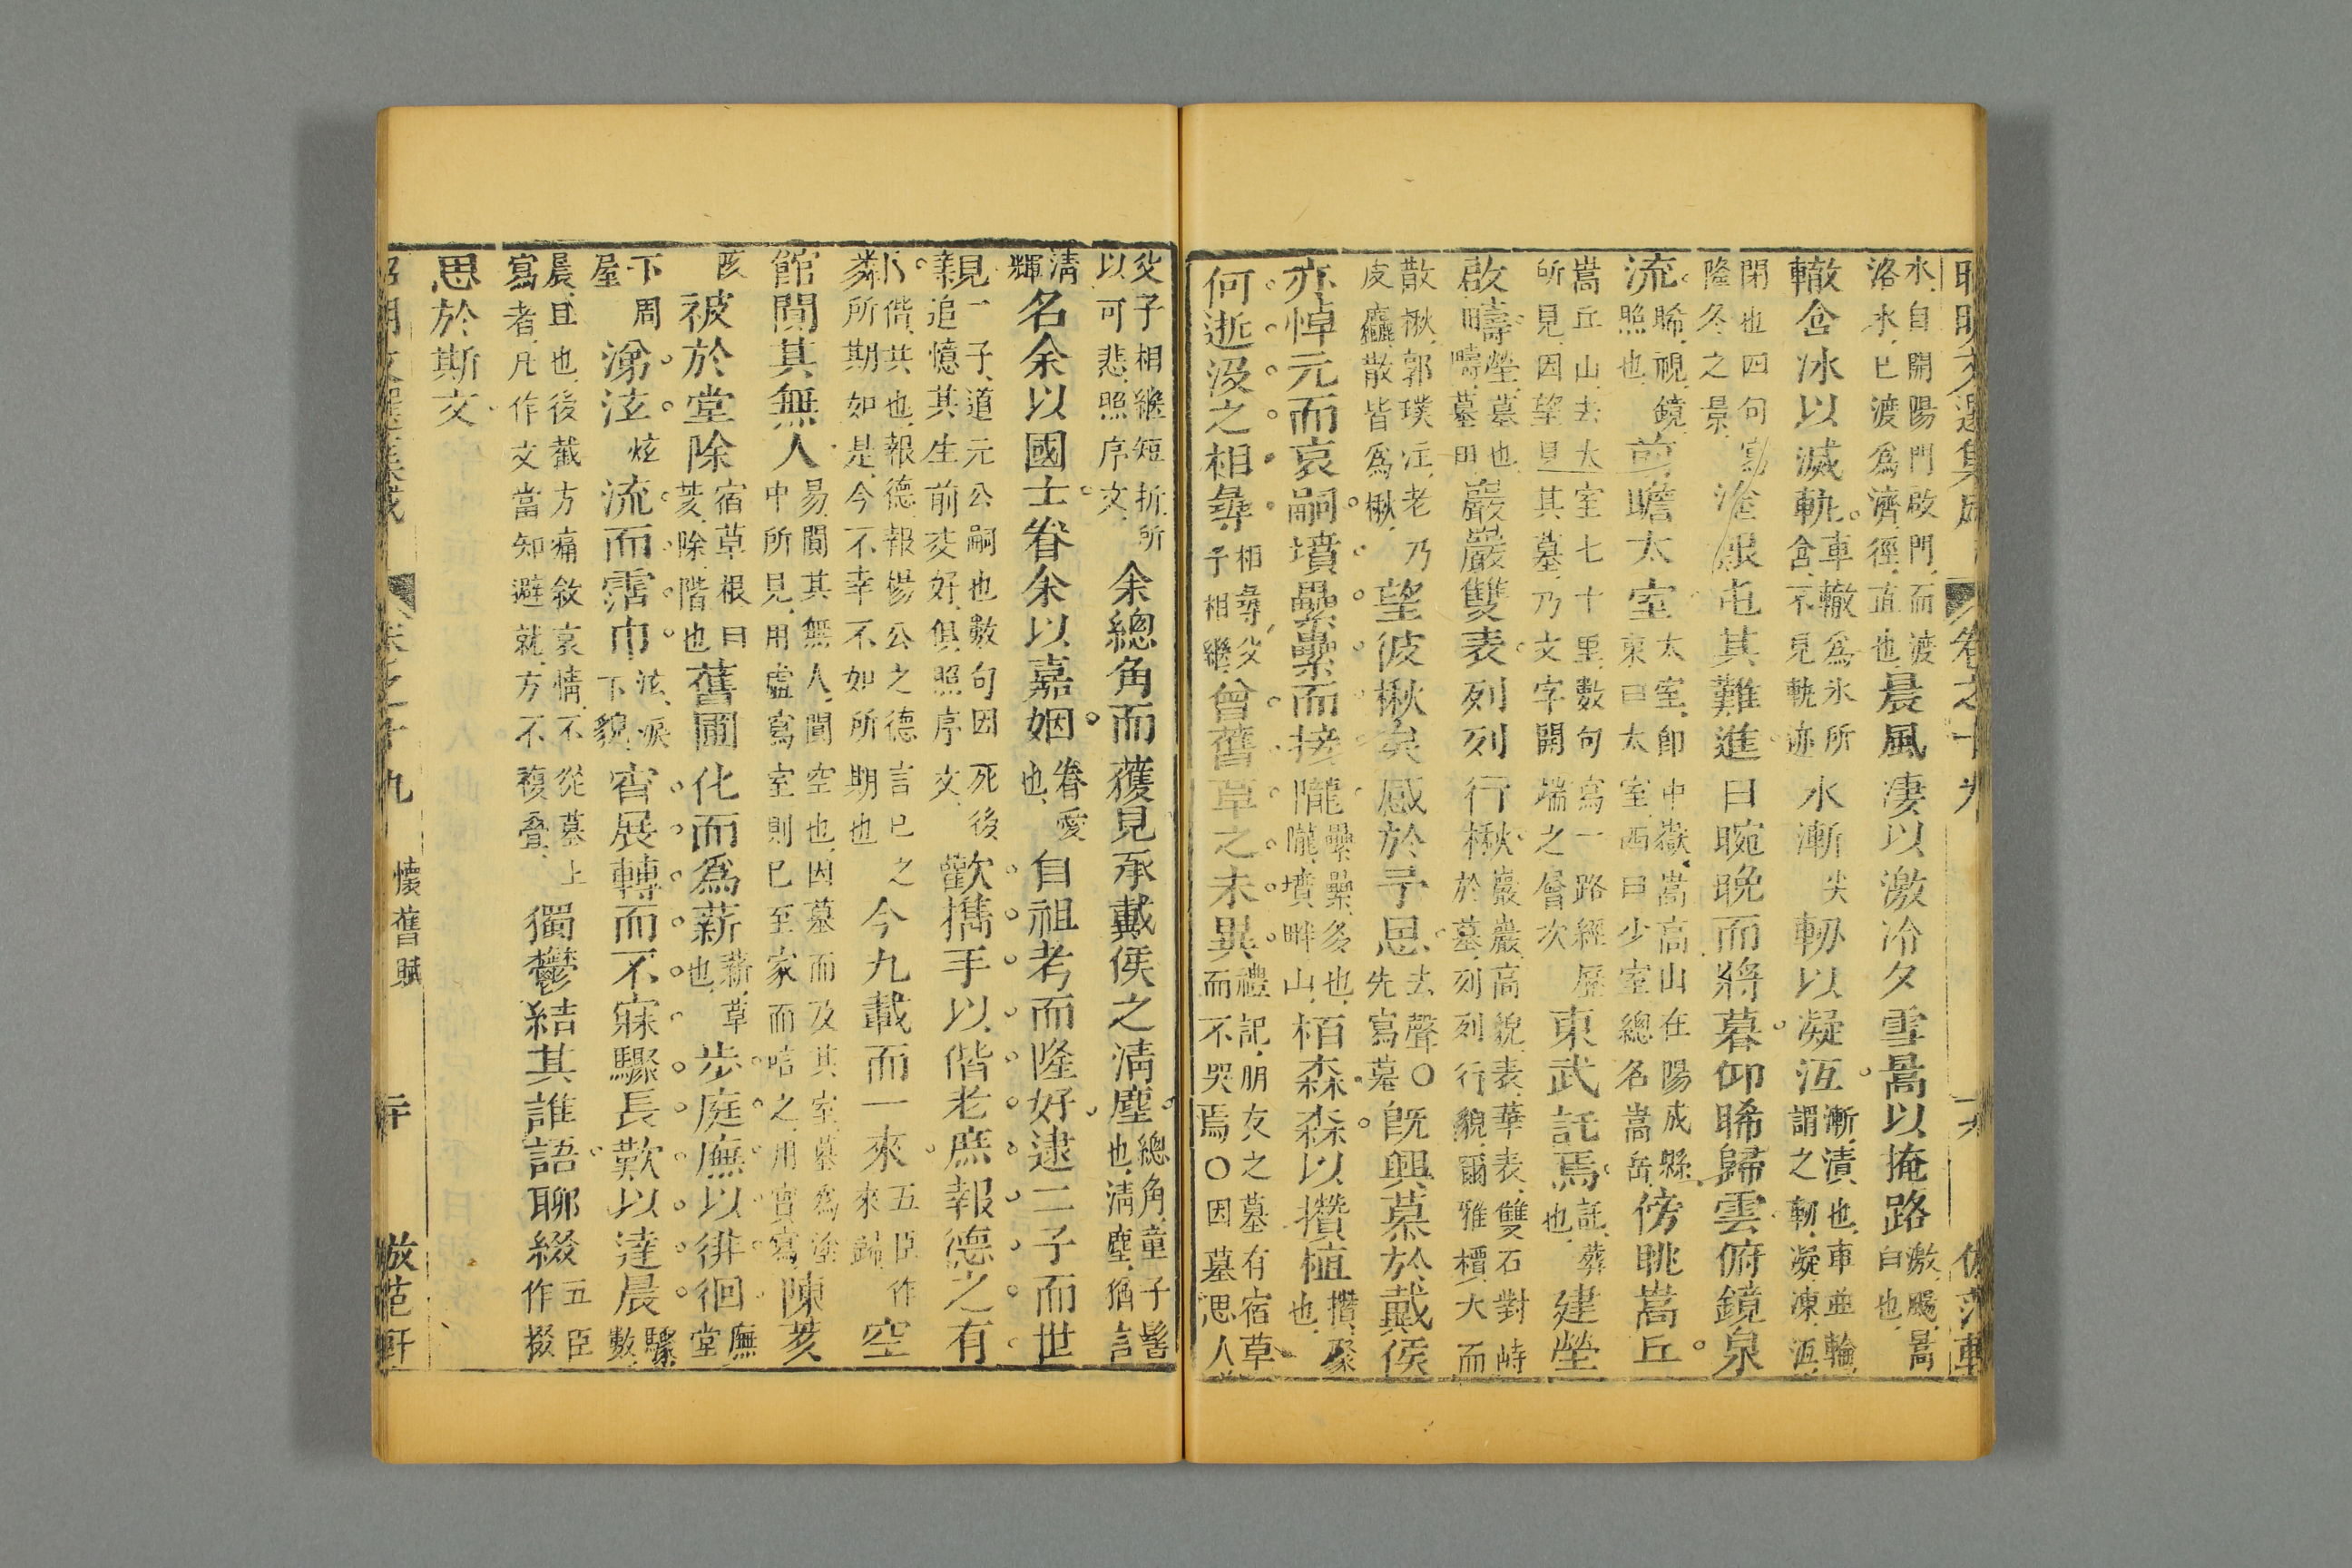 昭明文選集成 卷之十九 倣范軒
水自開陽門啟門而渡洛水已渡爲濟徑直也晨風凄以激冷夕雪暠以掩路激颺暠白也
轍含冰以滅軌車轍爲氷所含不見軌迹水漸尖軔以凝冱漸漬也車並輪謂之軔凝凍冱
閉也四句寫隆冬之景塗艱屯其難進日晼晚而將暮仰睎歸雲俯鏡泉
流睎視鏡照也前瞻太室太室卽中嶽嵩高山在陽成縣東曰太室西曰少室總名嵩岳傍眺嵩丘
嵩丘山去太室七十里數句寫一路經歷所見因望見其墓乃文字開端之層次東武託焉託葬也建塋
啟疇塋墓也田疇墓田巖巖雙表列列行楸巖巖高貌表華表雙石對峙於墓列列行貌爾雅櫃大而
散楸郭璞注老乃皮麤散皆爲楸望彼楸矣感於予思去聲○先寫墓旣興慕於戴侯
亦悼元而哀嗣墳壘壘而接隴壘壘多也隴墳畔山栢森森以攢植攢聚也
何逝沒之相尋相尋父子相繼曾舊草之未異禮記朋友之墓有宿草而不哭焉○因墓思人
父子相繼短折所以可悲照序文余總角而獲見承戴侯之淸塵總角童子髻也淸塵猶言
淸輝名余以國士眷余以嘉姻眷愛也自祖考而隆好逮二子而世
親一子道元公嗣也數句因死後追憶其生前交好俱照序文歡攜手以偕老庶報德之有
鄰偕共也報德報楊公之德言已之所期如是今不幸不如所期也今九載而一來五臣作來歸空
館闃其無人易闃其無人闃空也因墓而及其室墓爲塗中所見用虛寫室則已至家而唁之用實寫陳荄
陔被於堂除宿草根曰荄除階也舊圃化而爲薪薪草也步庭廡以徘徊廡堂
下周屋涕泫炫流而霑巾泫淚下貌宵展轉而不寐驟長歎以達晨驟數
晨旦也後截方痛敘哀情不從墓上寫者凡作文當知避就方不複疊獨鬱結其誰語聊綴五臣作掇
思於斯文
昭明文選集成 卷之十九 懷舊賦 二十 倣范軒